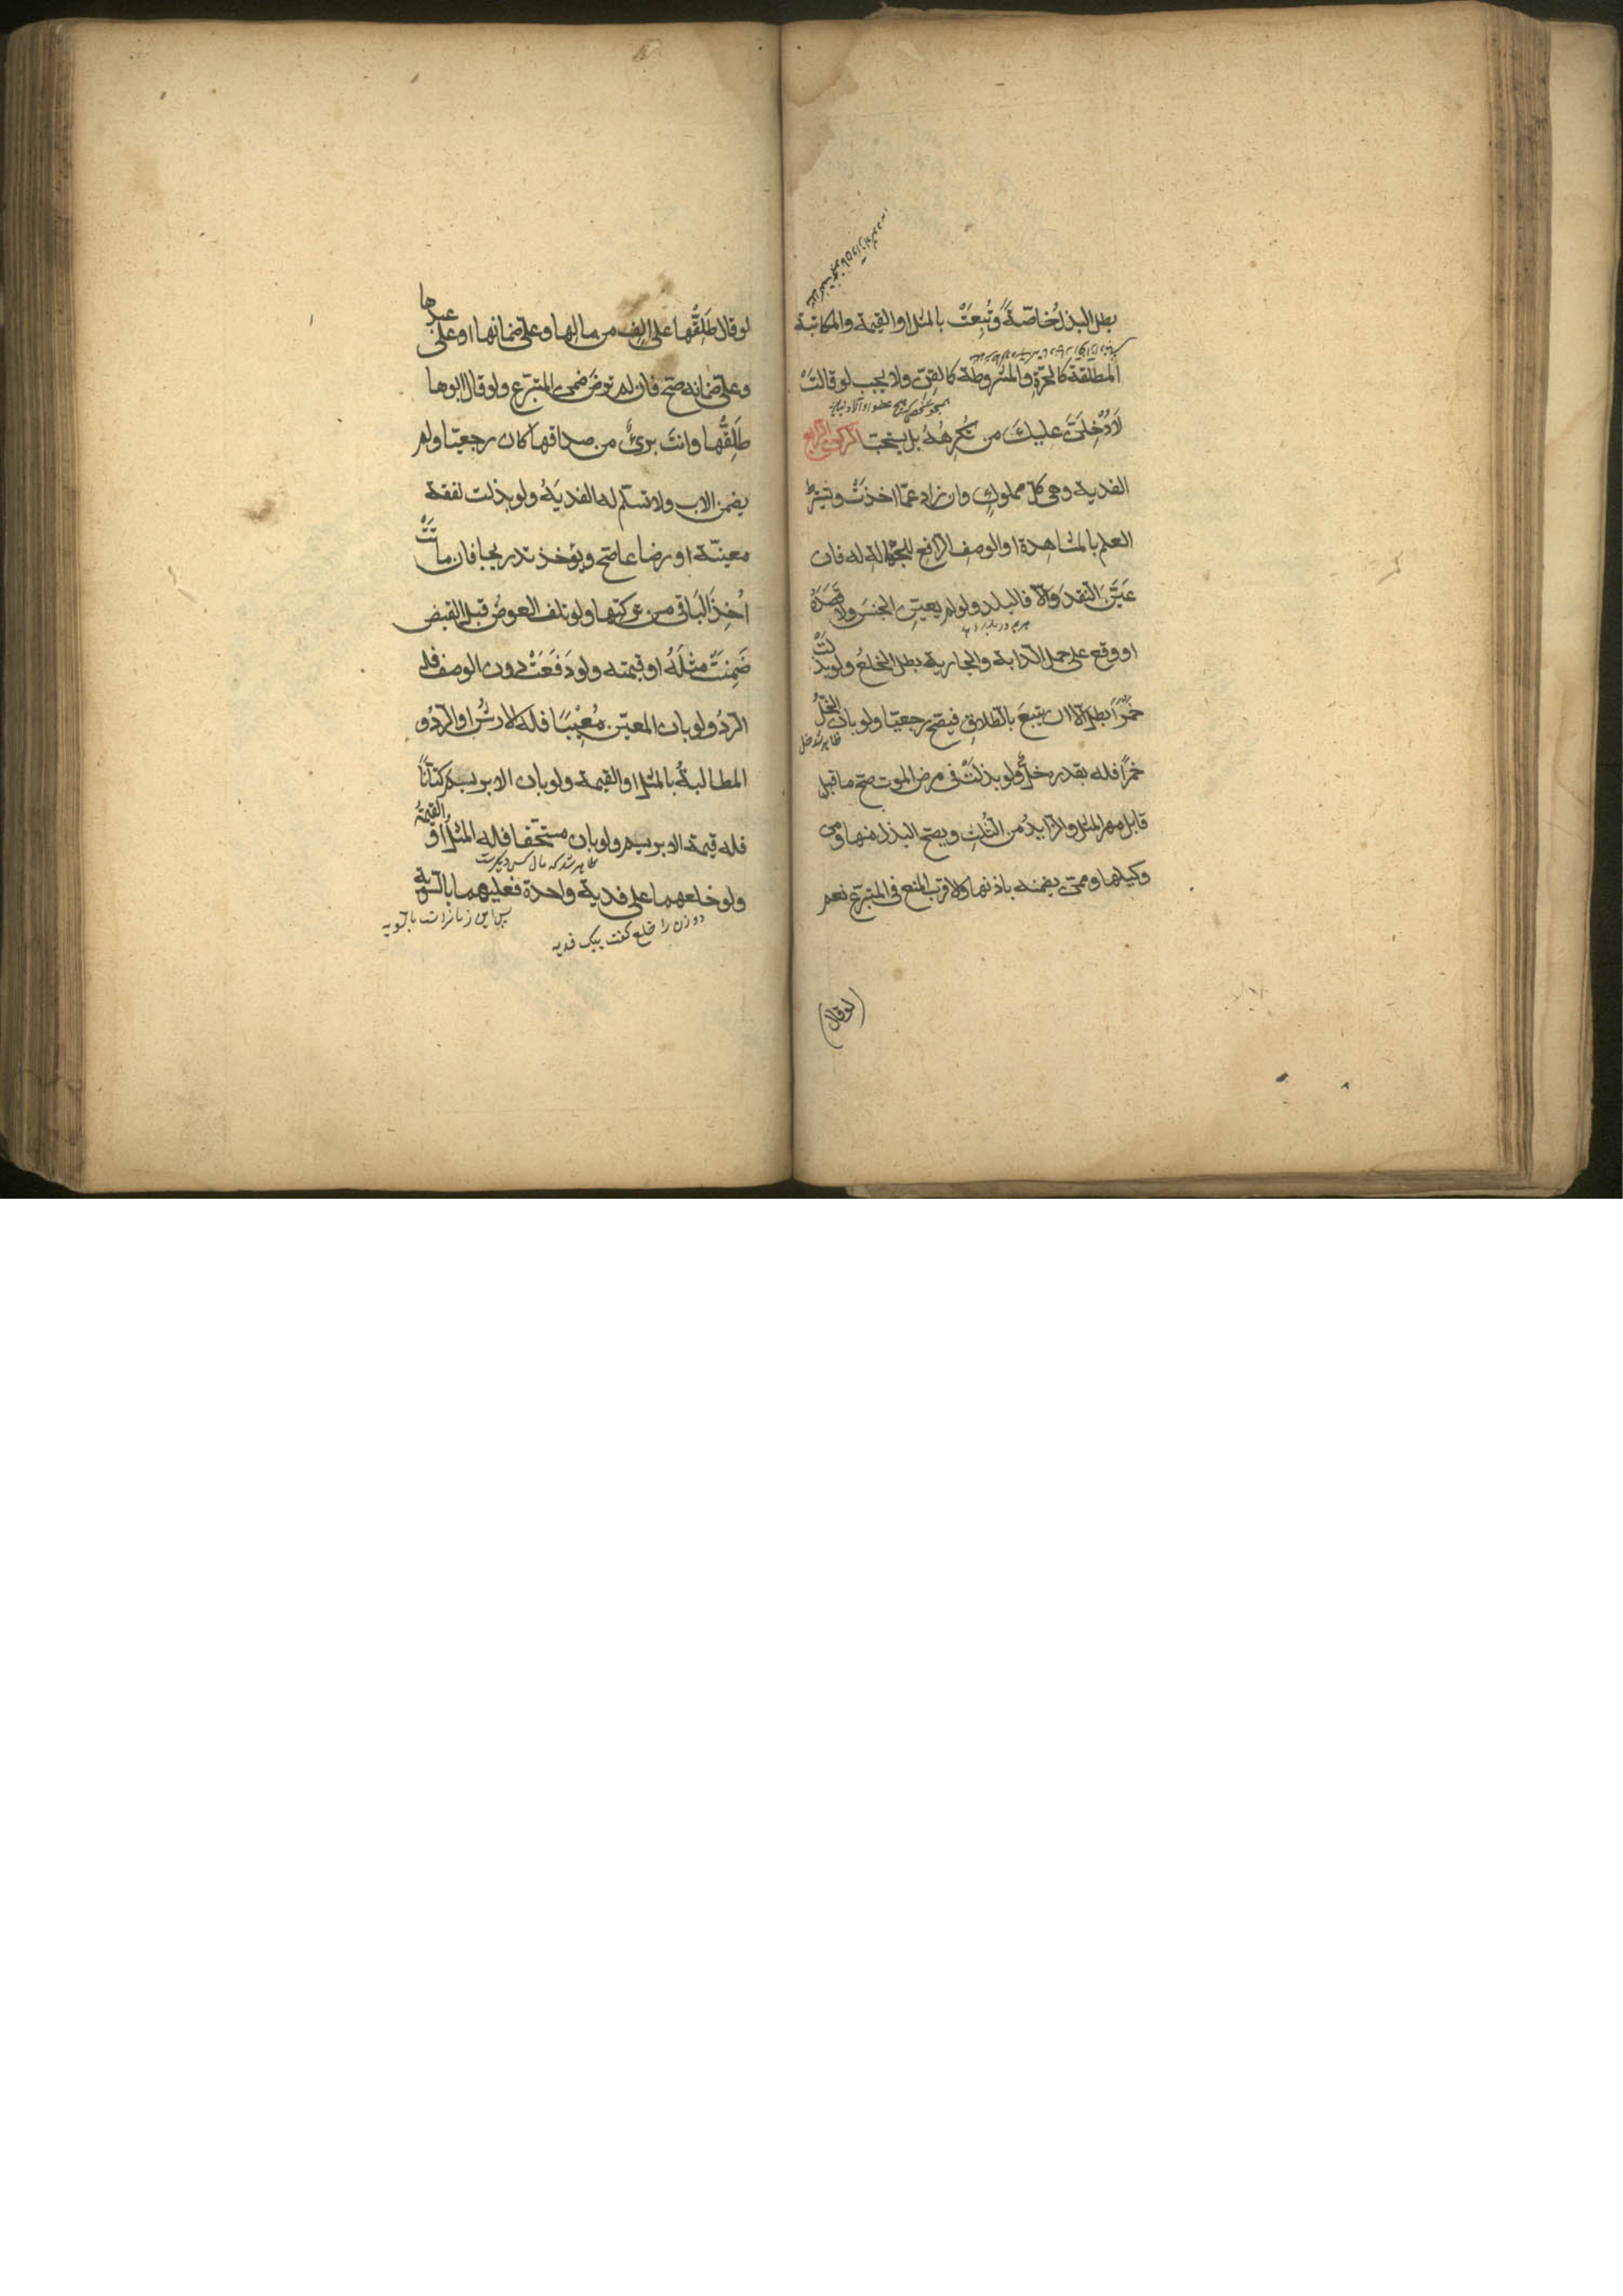 بطل البذل خاصّة وتُبِعَتْ بالمثل او القيمة والمكاتبة
المطلقة كالحرّةِ والمشروطة كالقِنّ ولا يجب لو قالتْ
لَاُدْخِلَنَّ عليكَ من تكرهُهُ بل يستحبّ الركن الرابع
الفدية وهى كلّ مملوكٍ وان زاد عمّا اخذَتْ ويشترط
العلم بالمشاهدة او الوصف الرّافعِ للجهالة له فان
عَيَّنَ النقدَ والّا فالبلد ولو لم يعيّنِ الجنسَ ولا قَصَدَهُ
او وقع على حمل الدّابة والجارية بطل الخلعُ ولو بذلَتْ
خمرًا بطل الّا ان يتبعَ بالطلاقِ فيصّح رجعيّا ولو بان الخلُّ
ظاهر شد خل
خمرًا فله بقدره خلٌّ ولو بذلَتْ فى مرض الموت صحّ ما قبل
قابل مهر المثل والزّايدُ من الثُلثِ ويصحّ البذل منها ومن
وكيلها وممّن يضمنه باذنها والاقرب المنع فى المتبرّع نعم
(لو قال)
لو قال طَلِّقْها على الف من مالها وعلىّ ضمانها او على عبدها
وعلىّ ضمانه صحّ فان لم ترضَ ضمن المتبرّع ولو قال ابوها
طَلِّقْها وانتَ برىٌٔ من صداقها كان رجعيّا ولم
يضمن الاب ولا تسلّم له الفديَةُ ولو بذلت نفقة
معينّة او رضاعا صحّ ويؤخذ تدريجا فان ماتَتْ
اُخِذَ الباقى من تركتها ولو تلف العوضُ قبل القبض
ضَمِنَتْ مثلَهُ او قيمته ولو دَفَعَتْ دون الوصف فله
الردُّ ولو بان المعيّن مُعِيْبًا فله الارشُ او الردُّ و
المطالبةُ بالمثل او القيمة ولو بان الابريسم كتّانًا
فله قيمة الابريسم ولو بان مستحقا فله المثلُ او القيمةُ
ظاهر شد که مال کس دیکرست
ولو خلعهما على فدية واحدة فعليهما بالسّويّة
دو زن را خلع کفت بیک فدیه